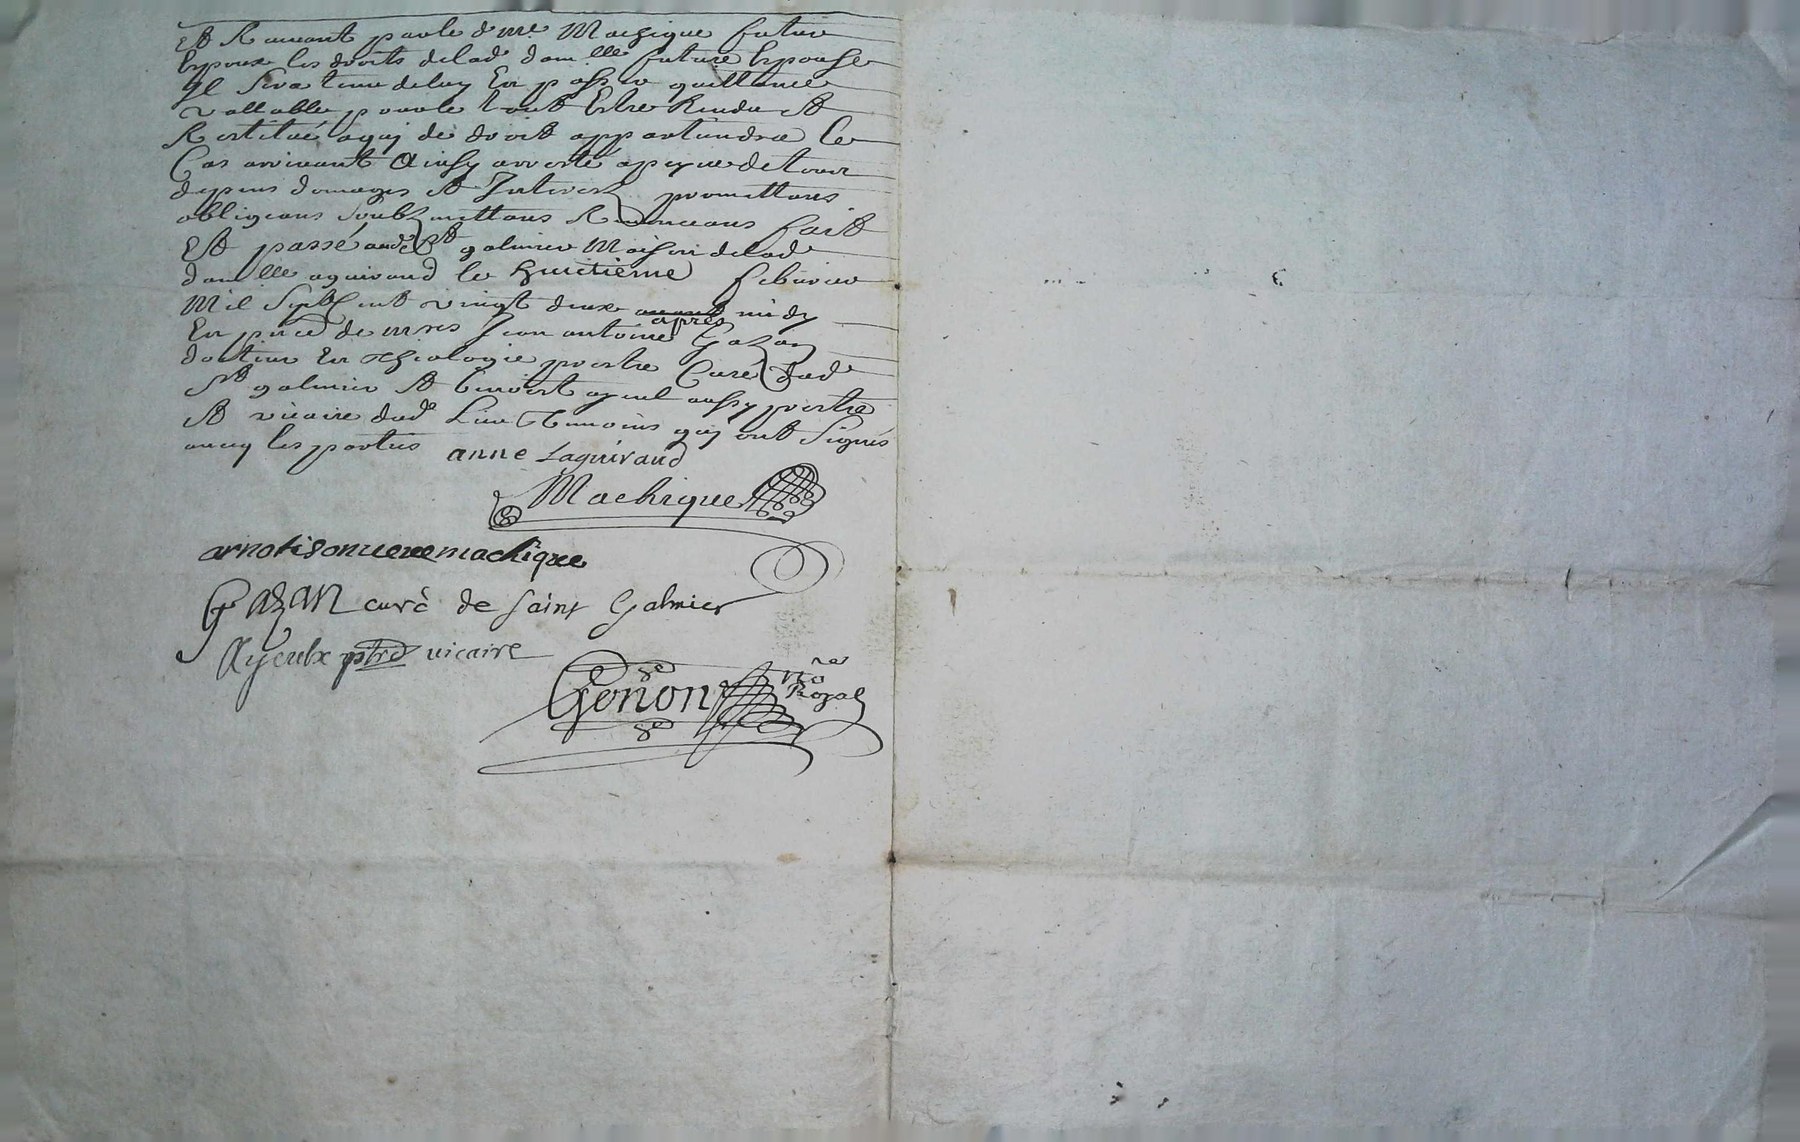 Et Recevant par le d. me. Machique futur
Espoux les droits de lad. dam.lle future Espouse
Il Sera tenu de luy En passer quittance
vallable pour le tout Estre Rendu Et
Restitué a qui de droit appartiendra le
Cas arrivant Ainsy arresté a peyne de tous
depens domages Et Interests promettans
obligeans Soubzmettans Renonceans fait
Et passé aud. St galmier Maison de lad.
dam.lle aguiraud le huictieme febvrier
Mil Sept Cent vingt deux avant après midy
En pnce de mres Jean antoine Gazan
docteur En theologie prestre Curé dud.
St galmier Et benoist ayeul aussy prestre
Et vicaire dud. Lieu temoins qui ont Signés
avecq les parties anne Laguiraud
Machique
machique
Gazan curé de saint Galmier
Ayeulx ptre vicaire
Gonon nore
Royal